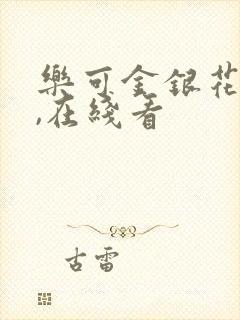 樂可金銀花
,在綫看
古雷